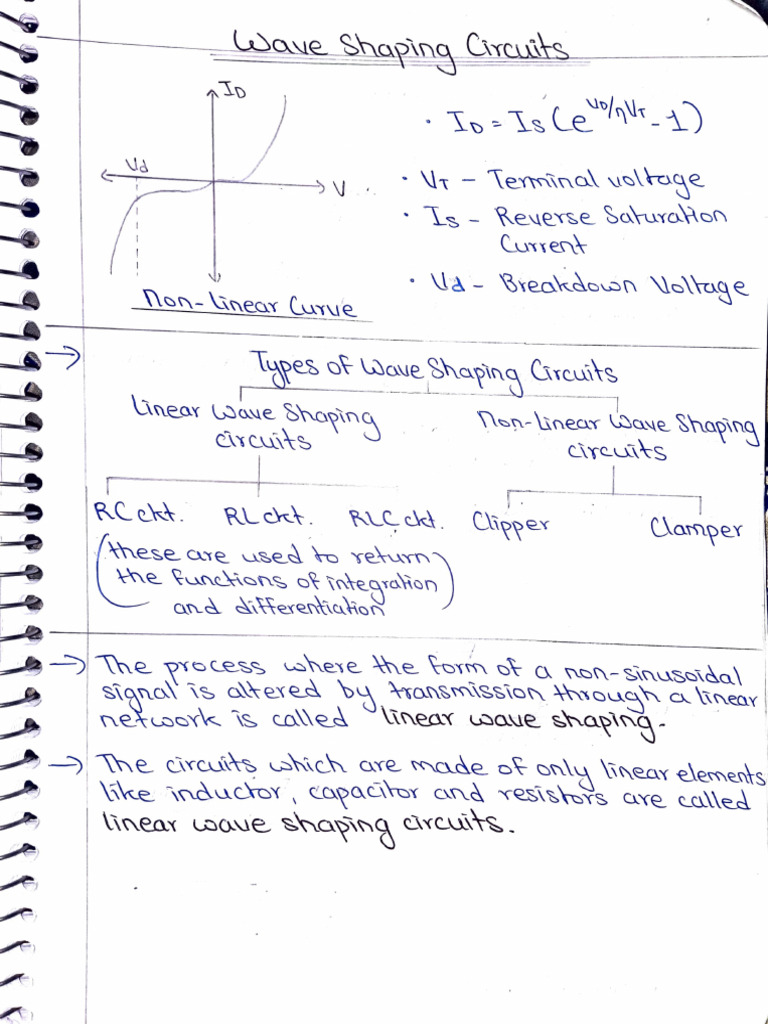 Wave Shaping Circuits
ID
Vd
V
Non-Linear Curve
• ID = Is (e^VD/ηVT - 1)
• VT - Terminal voltage
• Is - Reverse Saturation
Current
• Vd - Breakdown Voltage
→ Types of Wave Shaping Circuits
Linear Wave Shaping
circuits
Non-Linear Wave Shaping
circuits
RC ckt. RL ckt. RLC ckt. Clipper Clamper
(these are used to return
the functions of integration
and differentiation)
→ The process where the form of a non-sinusoidal
signal is altered by transmission through a linear
network is called linear wave shaping.
→ The circuits which are made of only linear elements
like inductor, capacitor and resistors are called
linear wave shaping circuits.